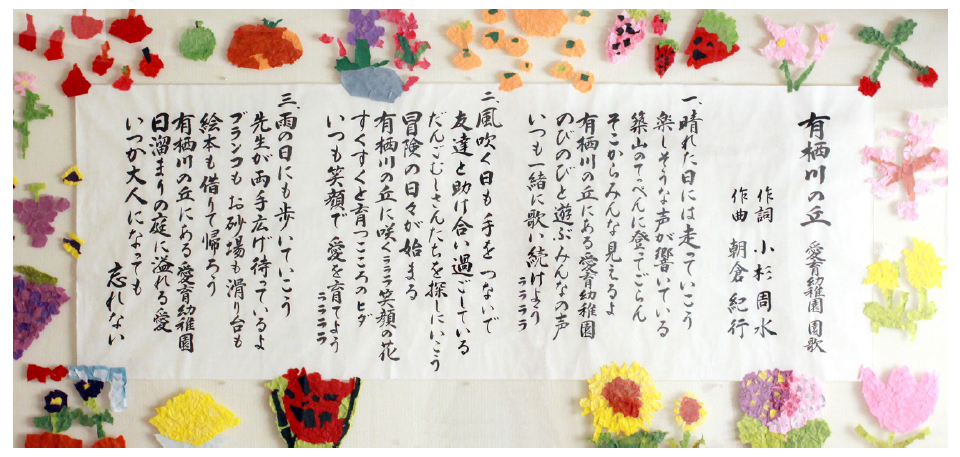 有栖川の丘 愛育幼稚園 園歌
作詞 小杉周水
作曲 朝倉紀行
一、晴れた日には走っていこう
楽しそうな声が響いている
築山のてっぺんに登ってごらん
そこからみんな見えるよ
有栖川の丘にある愛育幼稚園
のびのびと遊ぶみんなの声
いつも一緒に歌い続けよう
ララララ
二、風吹く日も手をつないで
友達と助け合い過ごしている
だんごむしさんたちを探しにいこう
冒険の日々が始まる
有栖川の丘に咲くララララ笑顔の花
すくすくと育つこころのヒダ
いつも笑顔で愛を育てよう
ララララ
三、雨の日にも歩いていこう
先生が両手広げ待っているよ
ブランコもお砂場も滑り台も
絵本も借りて帰ろう
有栖川の丘にある愛育幼稚園
日溜まりの庭に溢れる愛
いつか大人になっても
忘れない